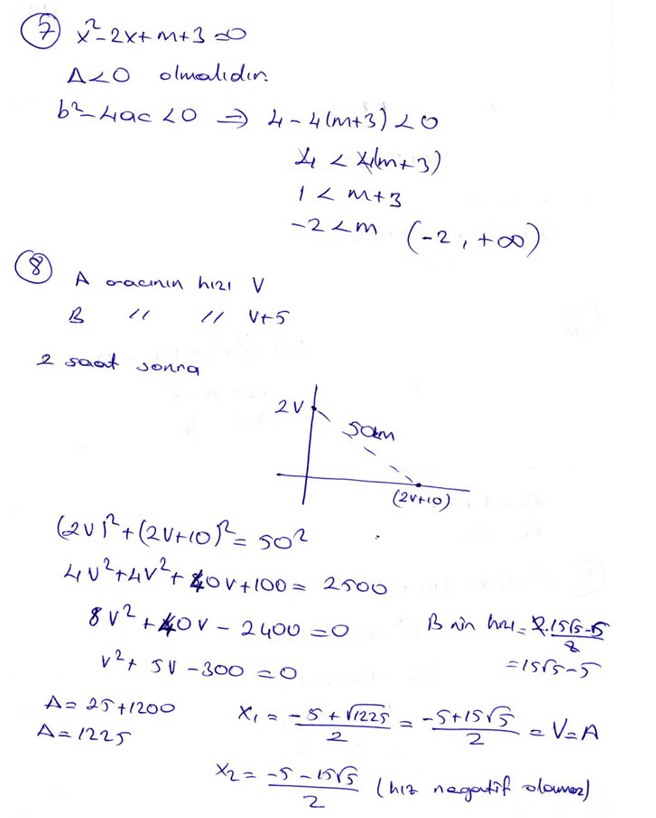 7 x² - 2x + m + 3 = 0
Δ < 0 olmalıdır.
b² - 4ac < 0 ⇒ 4 - 4(m+3) < 0
4 < 4(m+3)
1 < m + 3
-2 < m (-2, +∞)
8 A aracının hızı V
B " " V+5
2 saat sonra
2V
50km
(2V+10)
(2V)² + (2V+10)² = 50²
4V² + 4V² + 40V + 100 = 2500
8V² + 40V - 2400 = 0
B nin hızı = 2.15√5-5/2
V² + 5V - 300 = 0
= 15√5 - 5
Δ = 25 + 1200
Δ = 1225
x₁ = -5 + √1225/2 = -5 + 15√5/2 = V = A
x₂ = -5 - 15√5/2 (hız negatif olamaz)